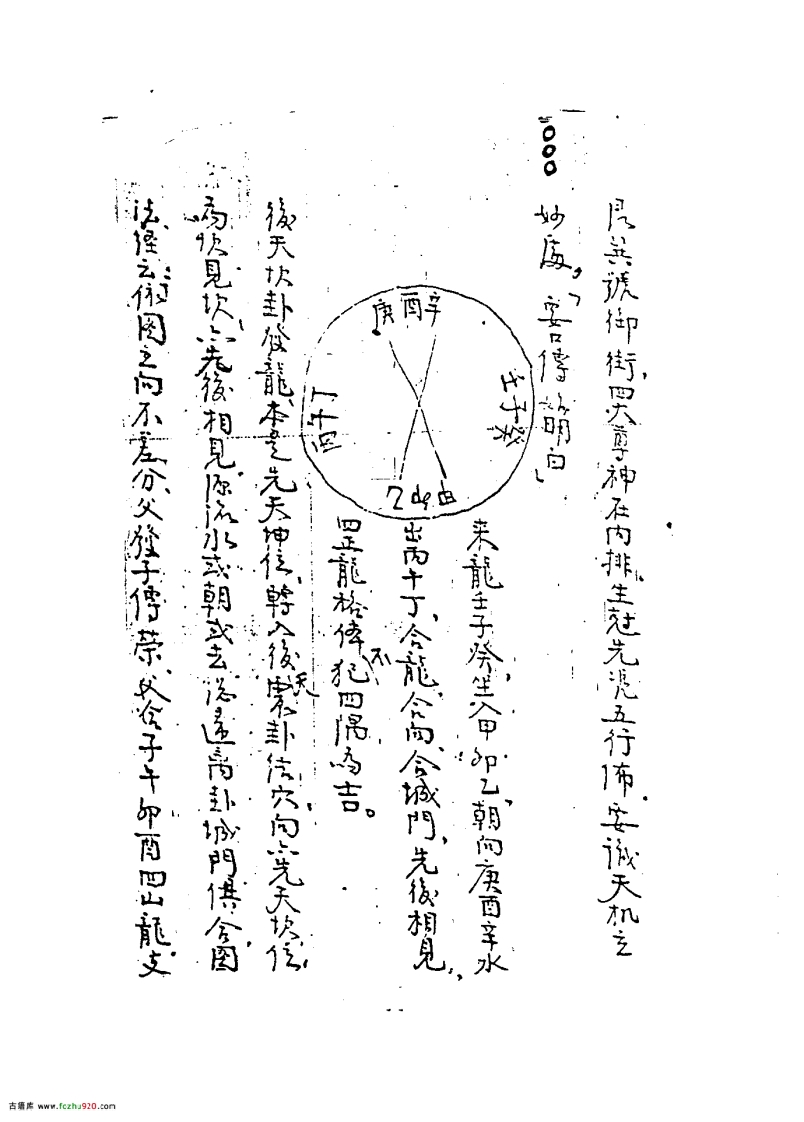 是英號御街、四大尊神在内排、生尅先凭五行佈、要識天机玄
妙處、要口傳說明白、
庚酉辛
壬子癸
丁午丙
乙卯甲
来龍壬子癸、坐入甲卯乙、朝向庚酉辛水
出丙午丁、合龍、合向、合城門、先後相見、
四正龍格俸不犯四隅為吉。
後天坎卦發龍、本是先天坤位、轉入後天震卦結穴、向六先天坎位、
為坎見坎、六先後相見、源流水或朝或去、總是离卦城門、俱合图
法、経云、依图立向不差分、父發子傳荣、父合子午卯酉四山龍、支
古籍库 www.fozhu920.com